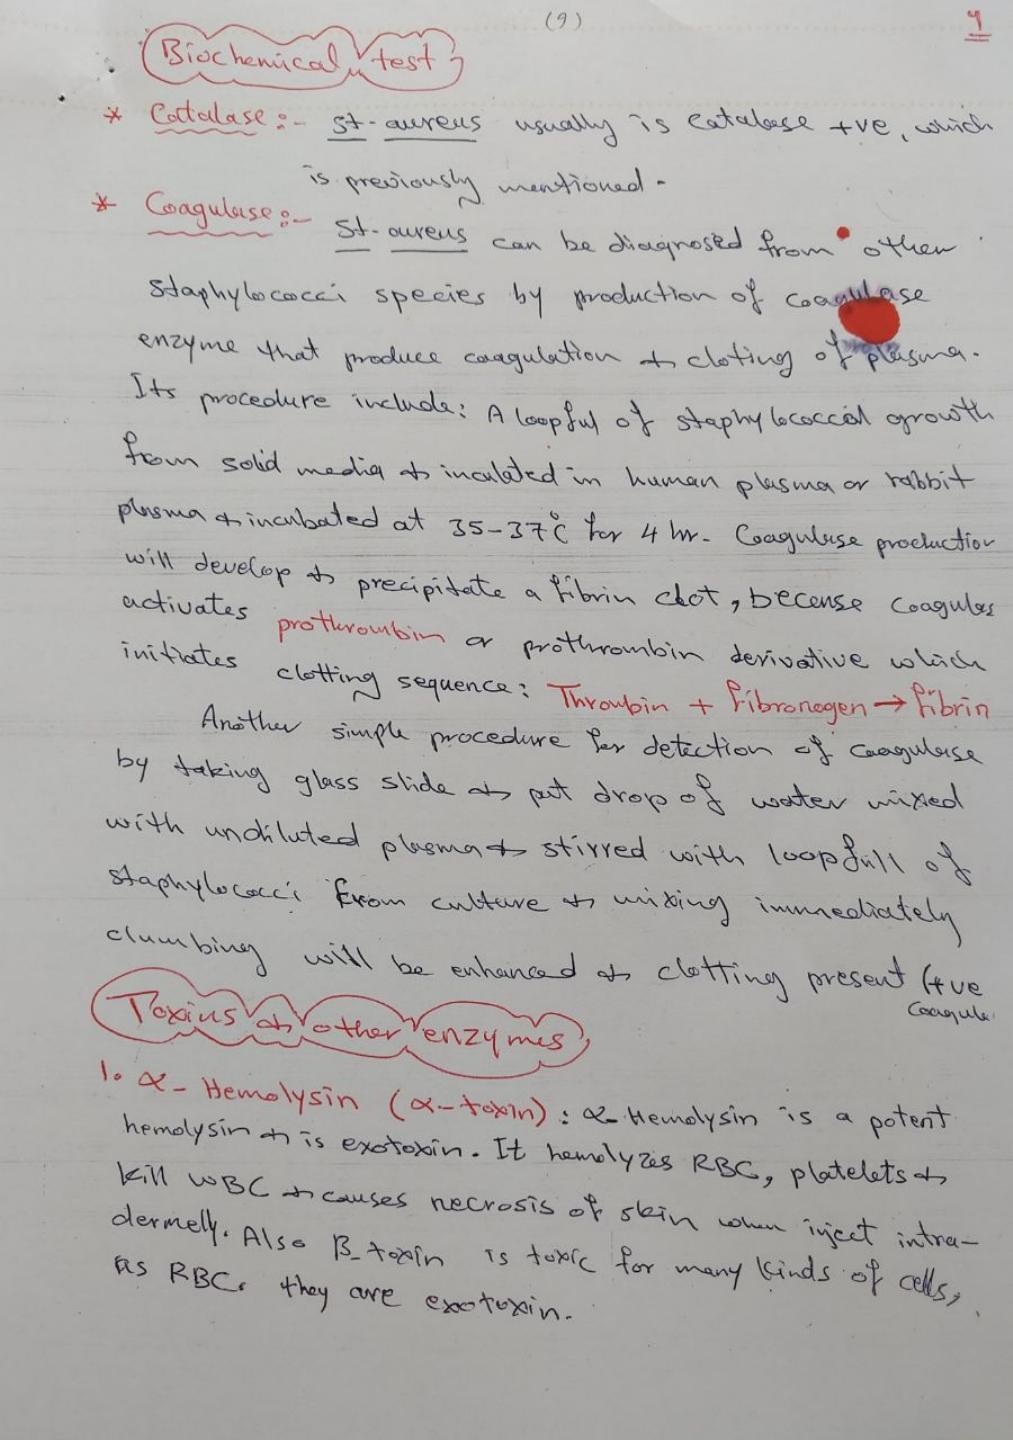 (9)
9
Biochemical test
* Catalase:- st-aureus usually is catalase +ve, which
is previously mentioned-
* Coagulase:- st-aureus can be diagnosed from other
staphylococci species by production of coagulase
enzyme that produce coagulation & cloting of plasma.
Its procedure include: A loopful of staphylococcal growth
from solid media & inculated in human plasma or rabbit
plasma & incubated at 35-37°C for 4 hr. Coagulase production
will develop & precipitate a fibrin clot, becense coagulas
activates prothrombin or prothrombin derivative which
initiates clotting sequence: Thrombin + fibronogen → fibrin
Another simple procedure for detection of coagulase
by taking glass slide & put drop of water mixed
with undiluted plasma & stirred with loopfull of
staphylococci from culture & mixing immediately
clumbing will be enhanced & clotting present (+ve
Coagula
Toxins & other enzymes
1. α-Hemolysin (α-toxin): α-Hemolysin is a potent
hemolysin & is exotoxin. It hemolyzes RBC, platelets &
kill WBC & causes necrosis of skin when inject intra-
dermelly. Also β-toxin is toxic for many kinds of cells,
as RBC. they are exotoxin.